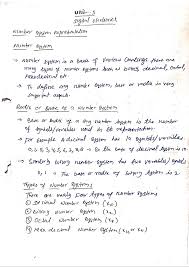 Unit - 5
Digital Electronics
Number System Representation
Number System
→ Number System is a base of various
many types of Number System such as binary, decimal, octal,
hexadecimal etc.
→ To define any number system, base or radix is very
important aspect.
Radix or Base of a Number System:
→ Base or Radix of any Number System is the number
of symbols/variables used to its representation.
→ For example A decimal System has 10 symbols/variables
0, 1, 2, 3, 4, 5, 6, 7, 8, 9. So the base of decimal System is 10
→ Similarly binary number system has two variables/symbols
0, 1. The base or radix of binary System is 2
Types of Number System:
There are mainly four types of Number System
1) Decimal Number System (x)₁₀
2) Binary Number System (x)₂
3) Octal Number System (x)₈
4) Hexa decimal Number System (x)₁₆